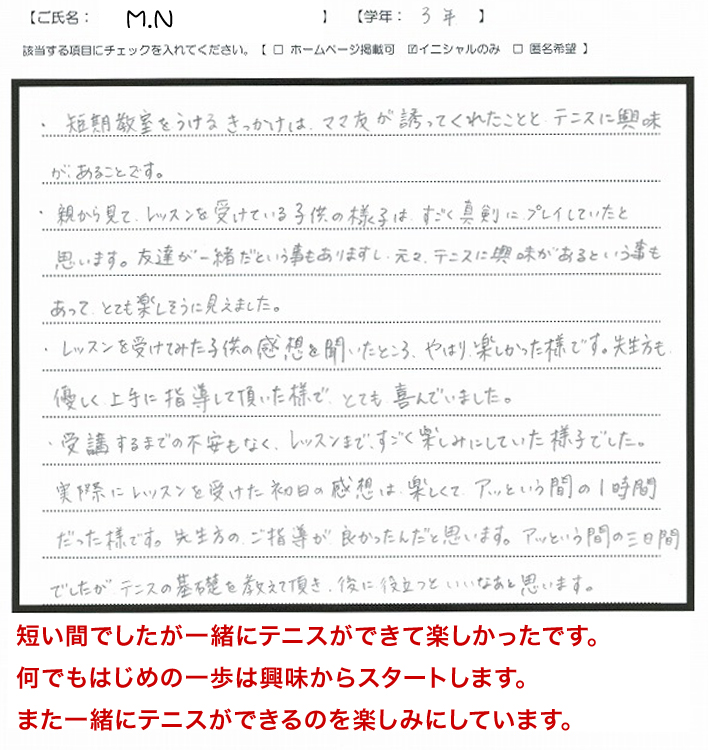 【ご氏名： M.N 】 【学年： 3年 】
該当する項目にチェックを入れてください。【 □ ホームページ掲載可 ☑イニシャルのみ □ 匿名希望 】
・ 短期教室をうけるきっかけは、ママ友が誘ってくれたことと、テニスに興味
が、あることです。
・ 親から見て、レッスンを受けている子供の様子は、すごく真剣に、プレイしていたと
思います。友達が一緒だという事もありますし、元々、テニスに興味があるという事も
あって、とても楽しそうに見えました。
・ レッスンを受けてみた子供の感想を聞いたところ、やはり、楽しかった様です。先生方も、
優しく、上手に指導して頂いた様で、とても喜んでいました。
・ 受講するまでの不安もなく、レッスンまで、すごく楽しみにしていた様子でした。
実際にレッスンを受けた初日の感想は、楽しくて、アッという間の1時間
だった様です。先生方の、ご指導が良かったんだと思います。アッという間の三日間
でしたが、テニスの基礎を教えて頂き、後に役立つといいなあと思います。
短い間でしたが一緒にテニスができて楽しかったです。
何でもはじめの一歩は興味からスタートします。
また一緒にテニスができるのを楽しみにしています。